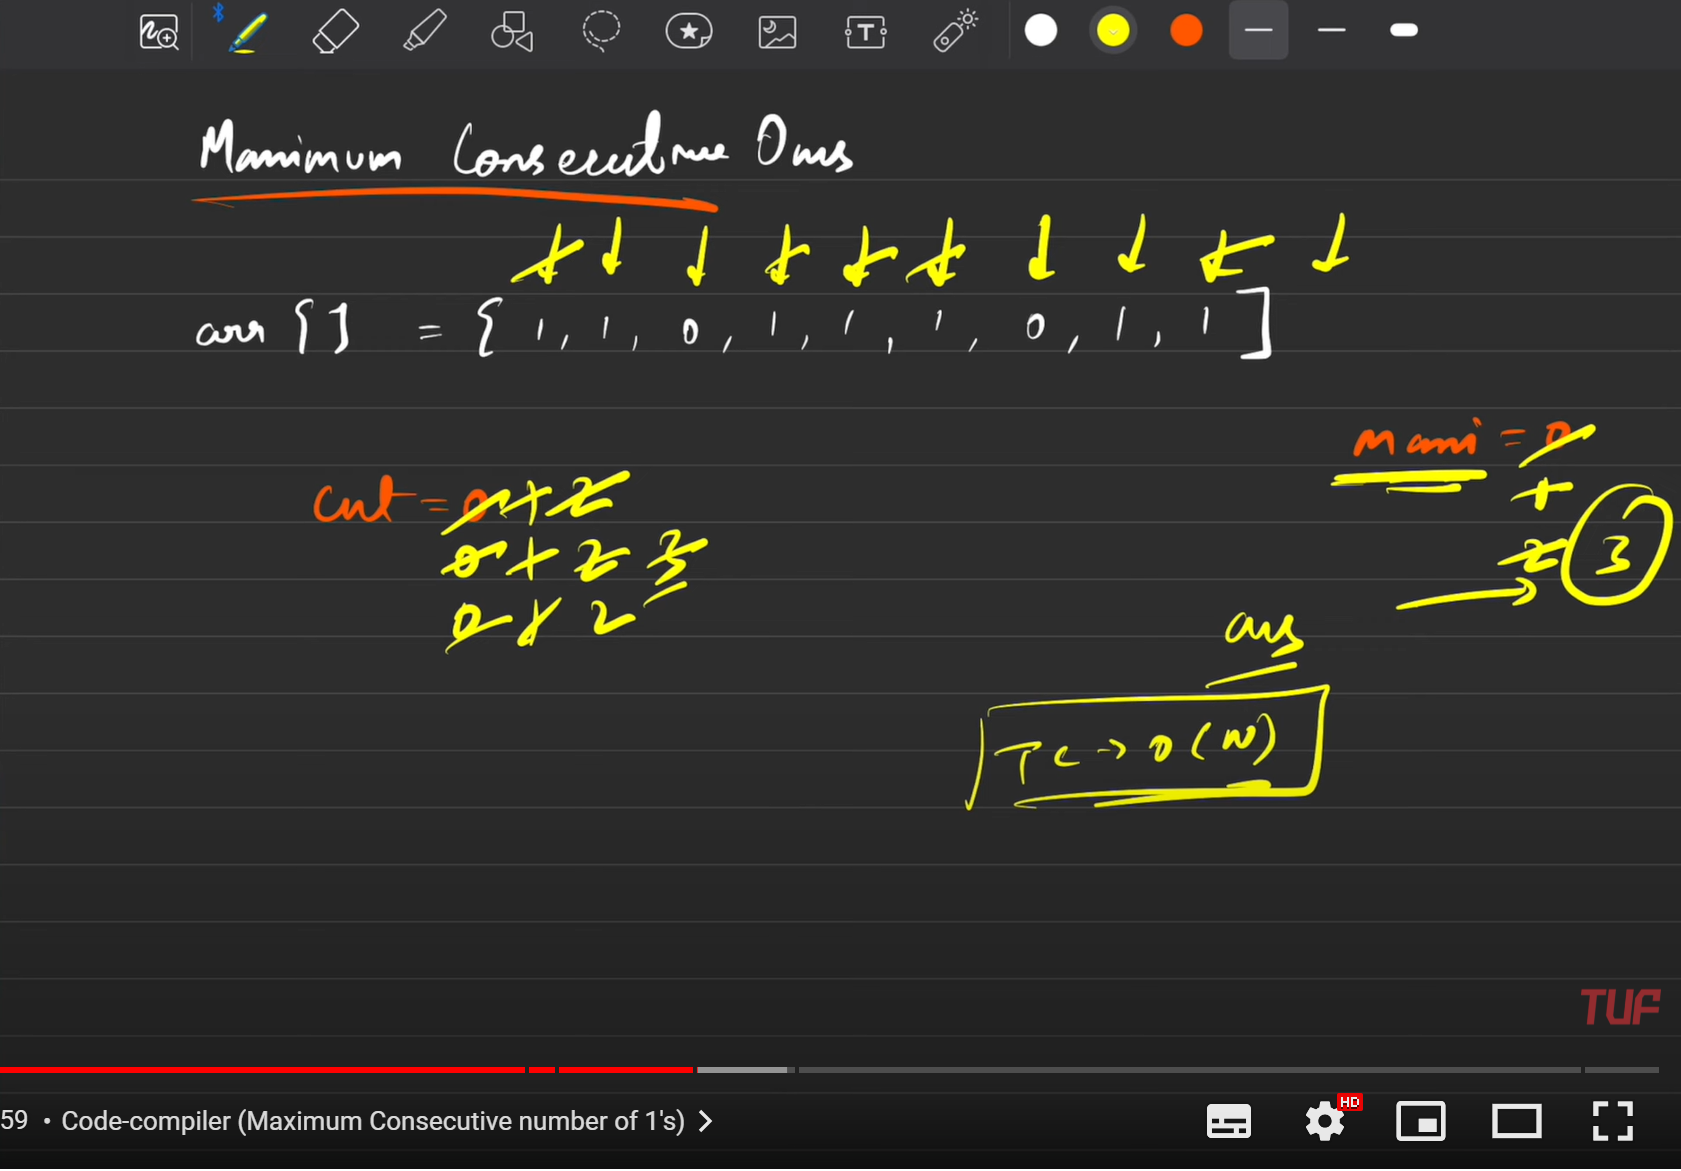 Maximum Consecutive Ones
arr [] = { 1, 1, 0, 1, 1, 1, 0, 1, 1 ]
maxi = 0
1
2 3
cnt = 0 1 2
0 1 2 3
0 1 2
ans
TC → O(N)
TUF
59 • Code-compiler (Maximum Consecutive number of 1's) >
HD